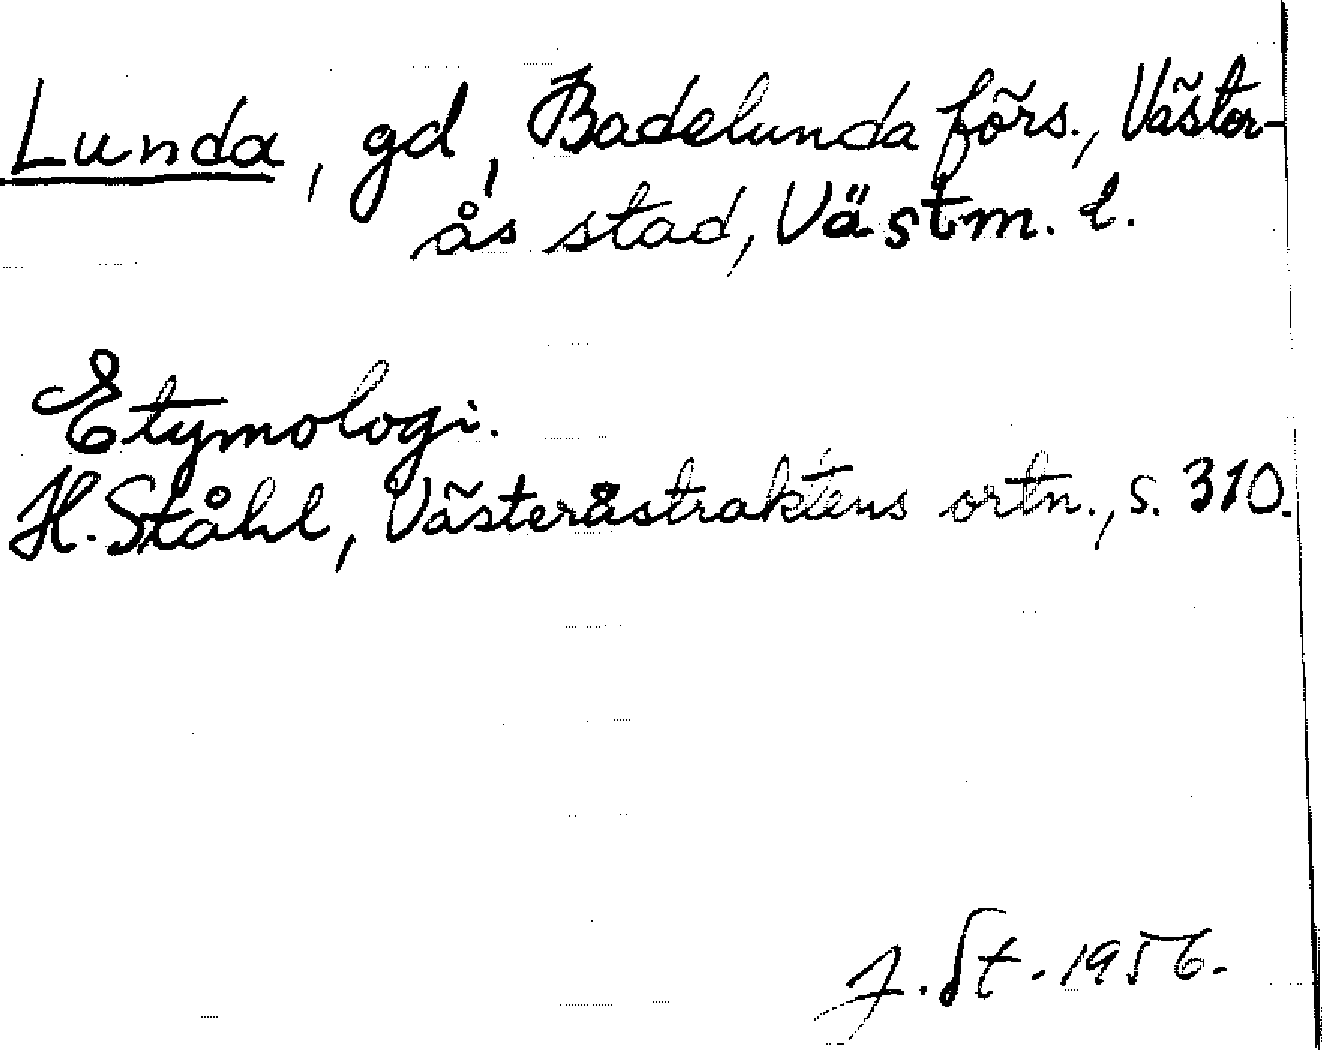 Lunda, gd, Badelunda förs., Väster-
ås stad, Västm. l.
Etymologi.
H. Ståhl, Västeråstraktens ortn., s. 310.
J. St. 1956.